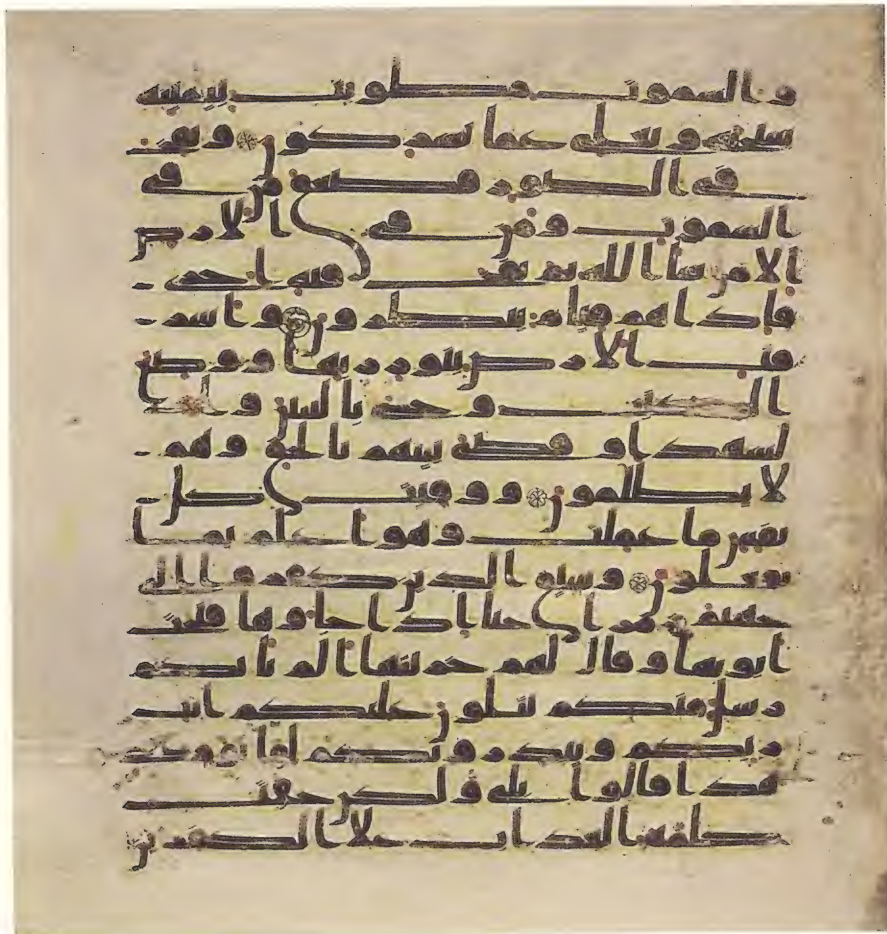 والسموت مطويت بيمينه
سبحنه وتعلى عما يشركون ونفخ
في الصور فصعق من في
السموت ومن في الارض
الا من شا الله ثم نفخ فيه اخرى
فاذا هم قيام ينظرون واشر
قت الارض بنور ربها ووضع
الكتب وجى بالنبين وا
لشهدا وقضى بينهم بالحق وهم
لا يظلمون ووفيت كل
نفس ما عملت وهو اعلم بما
يفعلون وسيق الذين كفروا الى
جهنم زمرا حتا اذا جاوها فتحت
ابوبها وقال لهم خزنتها الم ياتكم
رسل منكم يتلون عليكم ايت
ربكم وينذرونكم لقا يومكم
هذا قالوا بلى ولكن حقت
كلمة العذاب على الكفرين